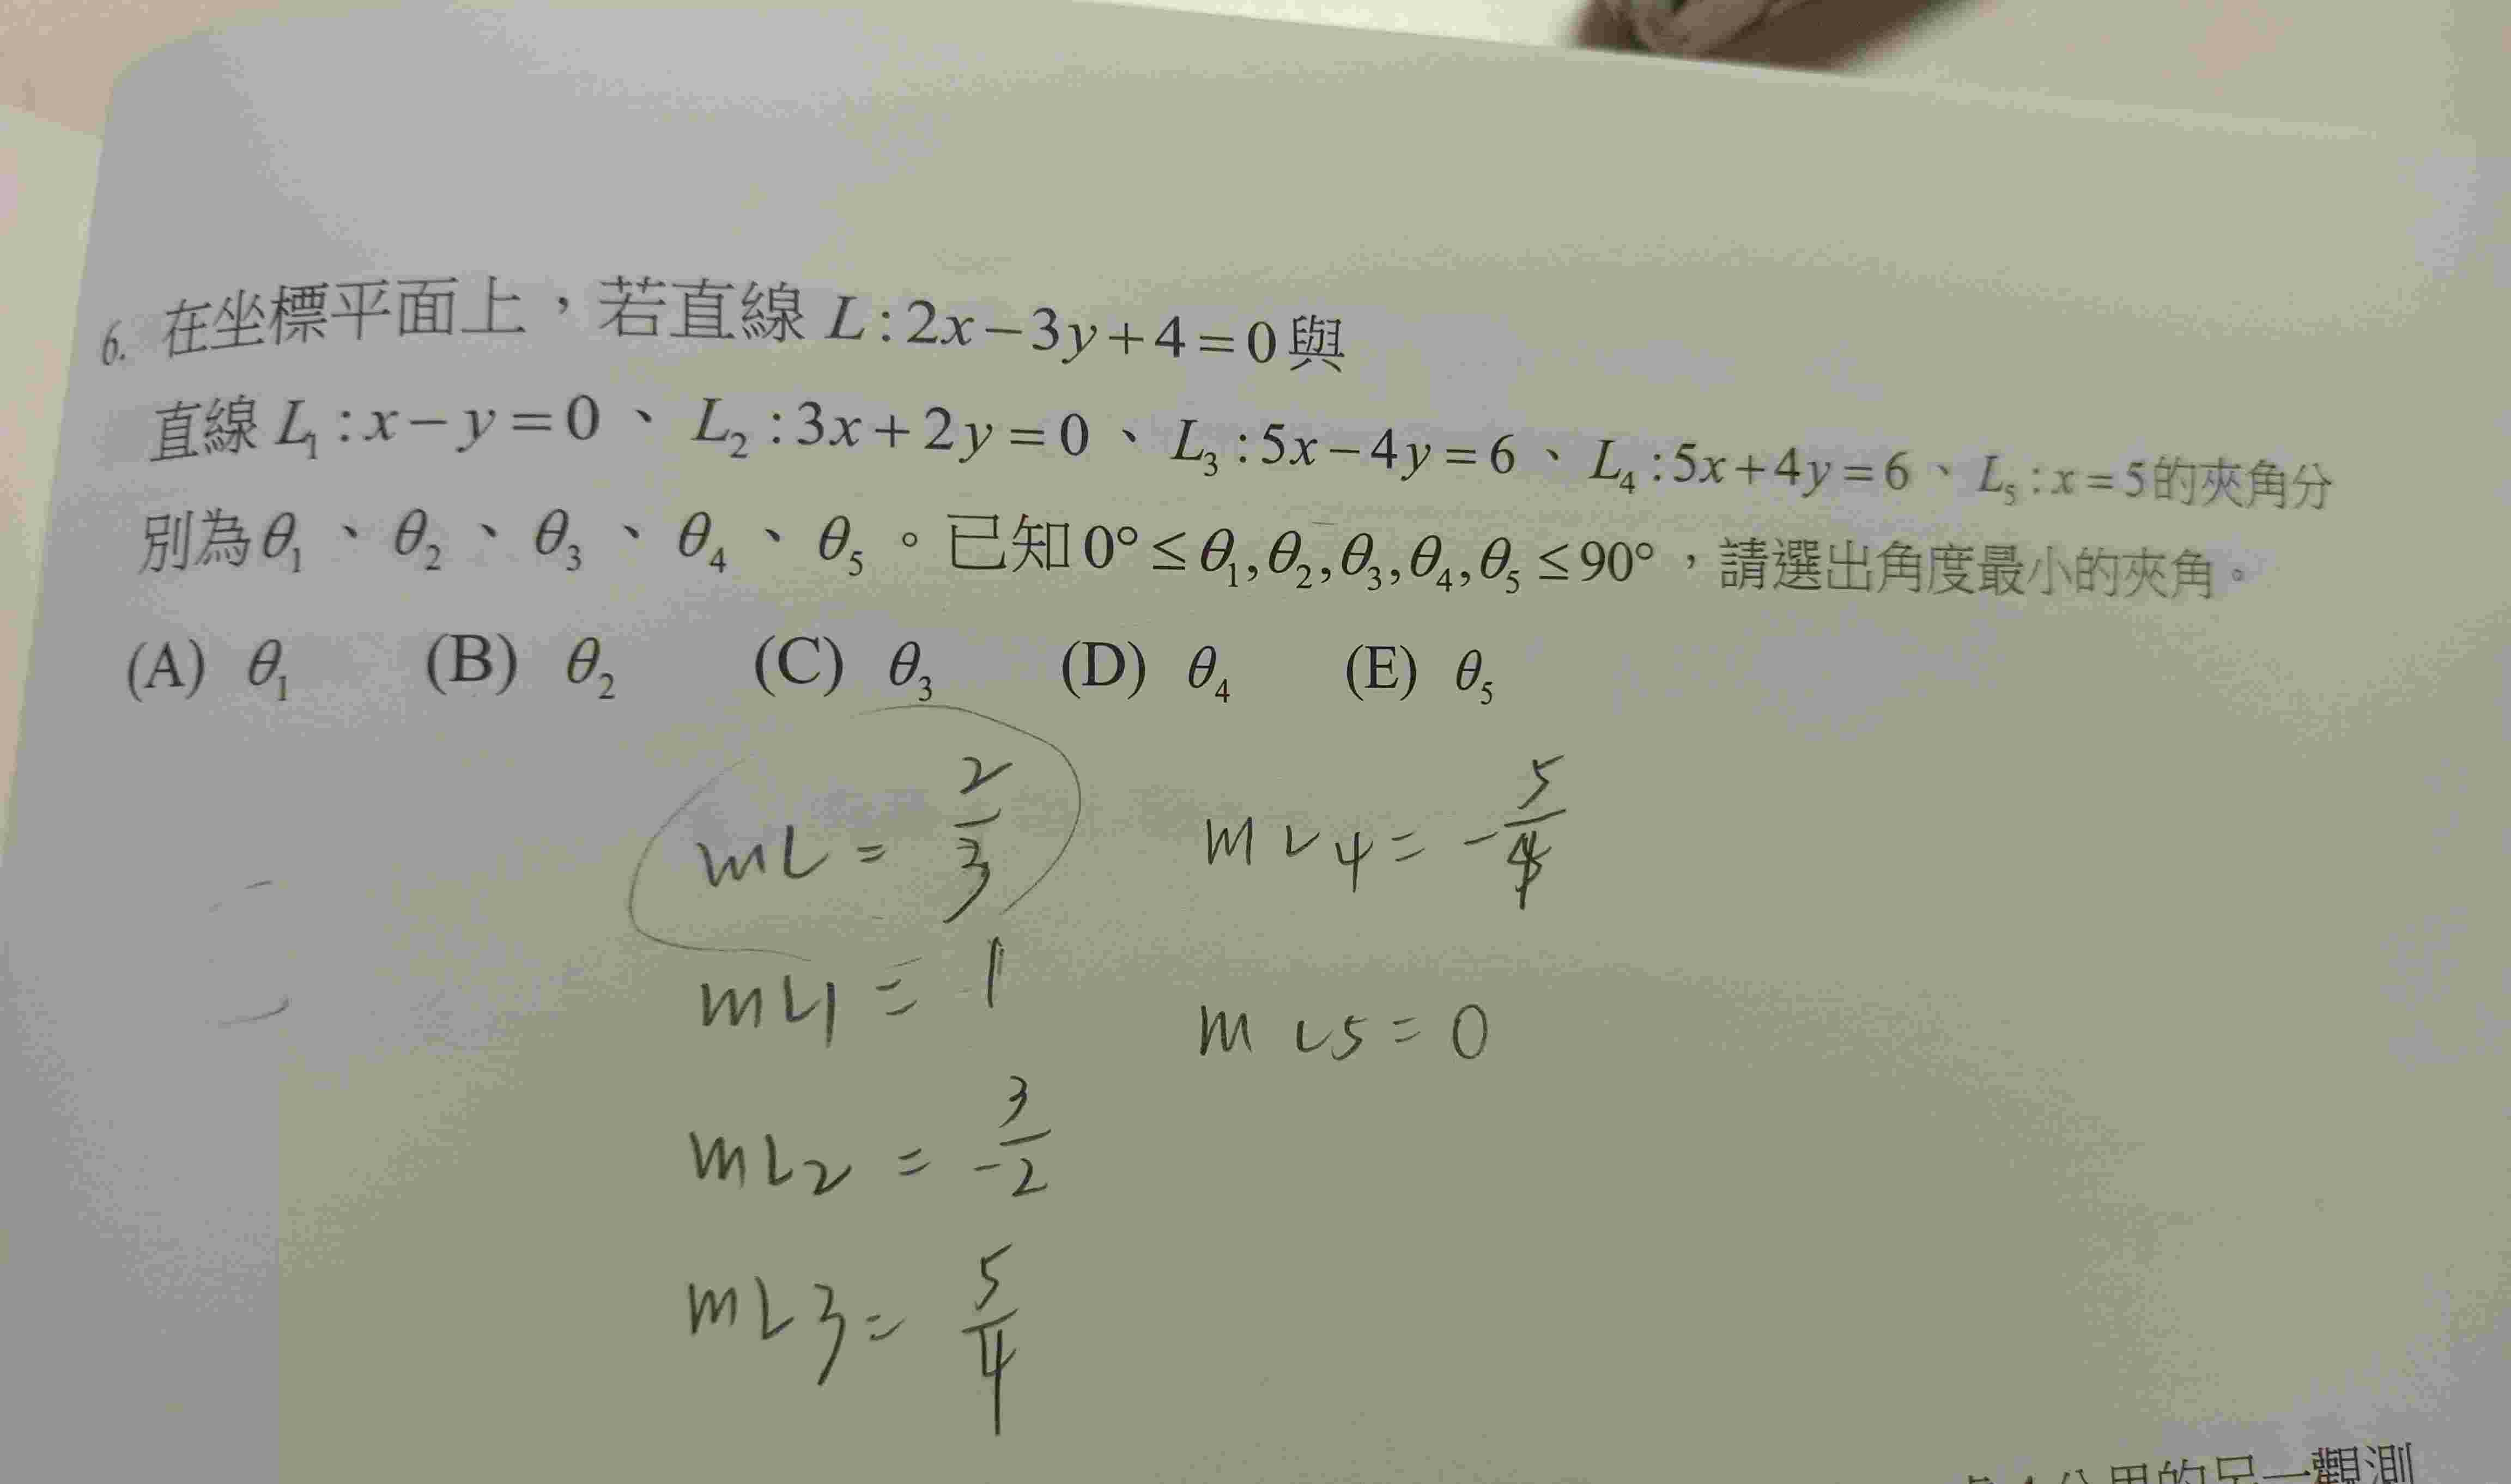 6. 在坐標平面上，若直線 L:2x−3y+4=0與
直線 L₁:x−y=0、L₂:3x+2y=0、L₃:5x−4y=6、L₄:5x+4y=6、L₅:x=5的夾角分
別為θ₁、θ₂、θ₃、θ₄、θ₅。已知0°≤θ₁,θ₂,θ₃,θ₄,θ₅≤90°，請選出角度最小的夾角。
(A) θ₁ (B) θ₂ (C) θ₃ (D) θ₄ (E) θ₅
mL = 2/3
mL1 = 1
mL2 = 3/-2
mL3 = 5/4
mL4 = -5/4
mL5 = 0
公里的另一觀測